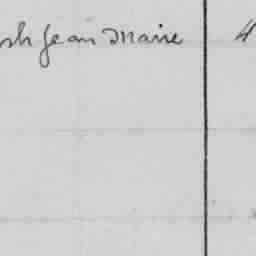 sh Jean Marie 4